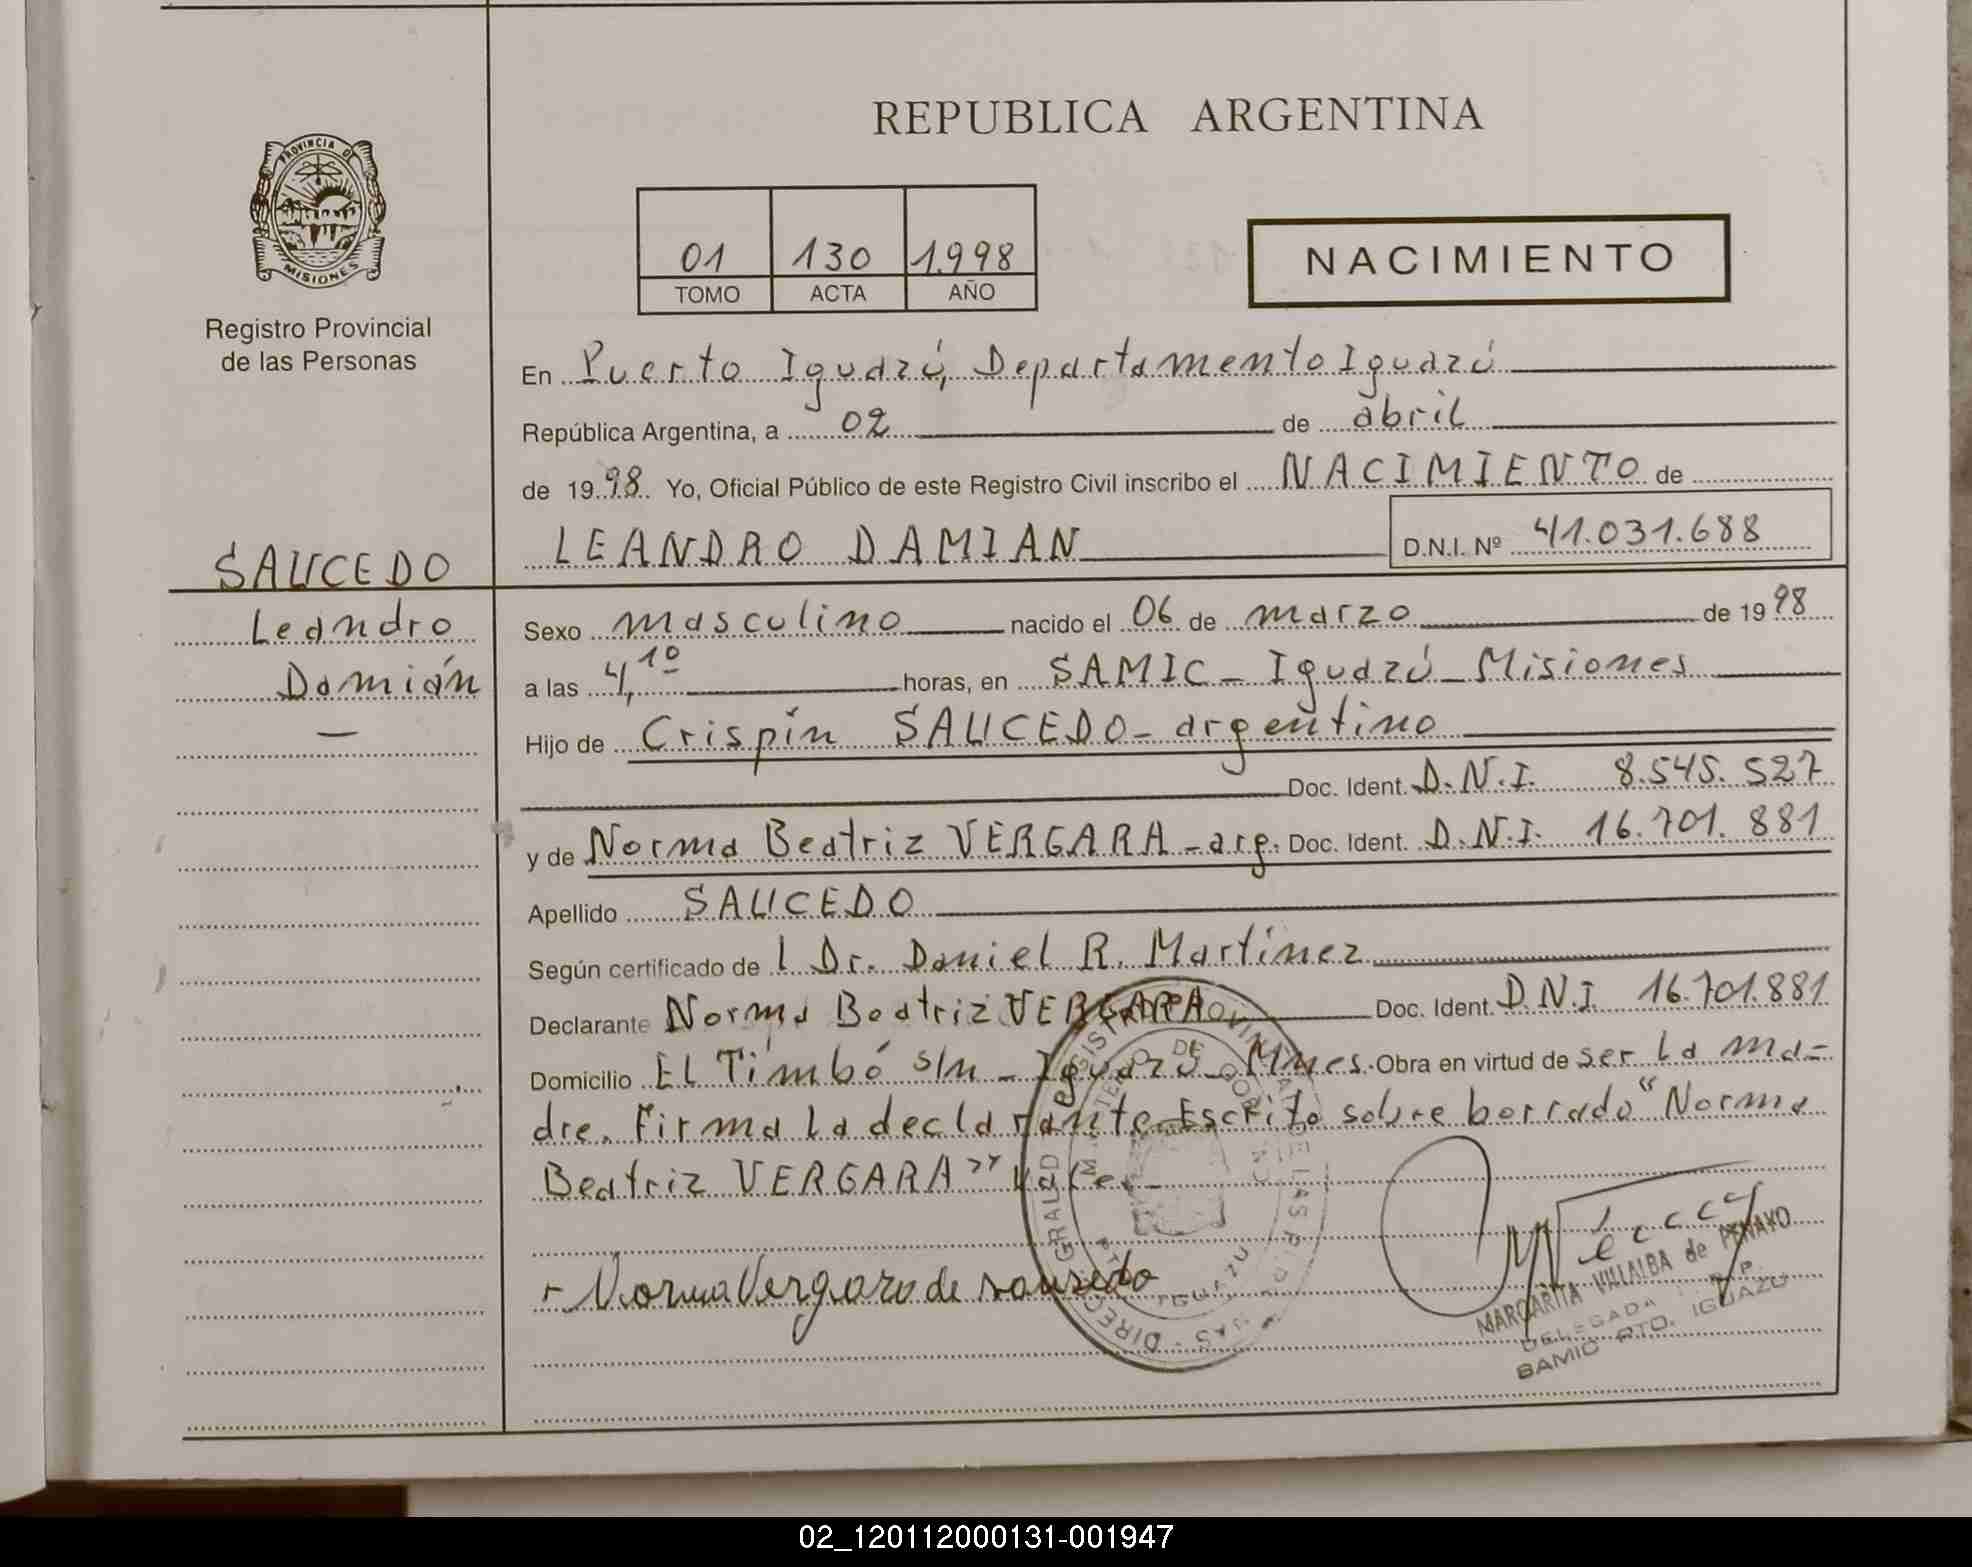 REPUBLICA ARGENTINA
PROVINCIA DE
MISIONES
Registro Provincial
de las Personas
01 130 1.998
TOMO ACTA AÑO
NACIMIENTO
En Puerto Iguazú, Departamento Iguazú
República Argentina, a 02 de abril
de 19 98. Yo, Oficial Público de este Registro Civil inscribo el NACIMIENTO de
LEANDRO DAMIAN D.N.I. Nº 41.031.688
SAUCEDO
Leandro
Damián
Sexo masculino nacido el 06 de marzo de 19 98
a las 4,10 horas, en SAMIC - Iguazú - Misiones
Hijo de Crispín SAUCEDO - argentino
Doc. Ident. D.N.I. 8.545.527
y de Norma Beatriz VERGARA - arg. Doc. Ident. D.N.I. 16.701.881
Apellido SAUCEDO
Según certificado de l Dr. Daniel R. Martínez
Declarante Norma Beatriz VERGARA Doc. Ident. D.N.I. 16.701.881
Domicilio El Timbó s/n - Iguazú - Mnes. Obra en virtud de ser la ma-
dre. Firma la declarante. Escrito sobre borrado "Norma
Beatriz VERGARA" Vale.-
- Norma Vergara de sauzedo
MARGARITA VILLALBA de PENAYO
DELEGADA R. P.
SAMIC PTO. IGUAZU
02_120112000131-001947